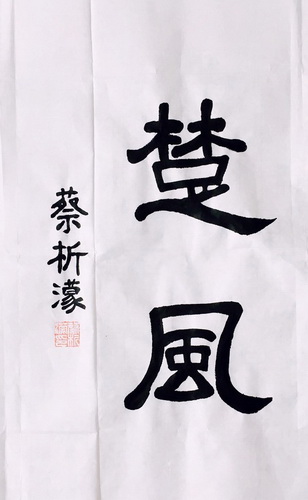 楚風
蔡析濛